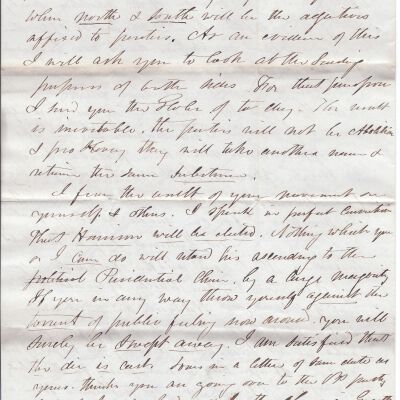 When north & south will be the adjectives
affixed to parties. As an evidence of this
I will ask you to look at the leading
presses of both sides For that purpose
I send you the Globe of to day. The result
is inevitable, the parties will not be Abolition
& pro Slavery they will take another name &
retain the same substance.
I fear the result of your movement on
yourself & others. I speak in perfect conviction
that Harrison will be elected. Nothing which you
or I can do will retard his according to the
political Presidential Chair, by a large majority
If you in any way throw yourself against the
torrent of public feeling now around you will
surely be swept away. I am satisfied that
the die is cast. in a letter of same date as
yours. thinks you are going over to the party